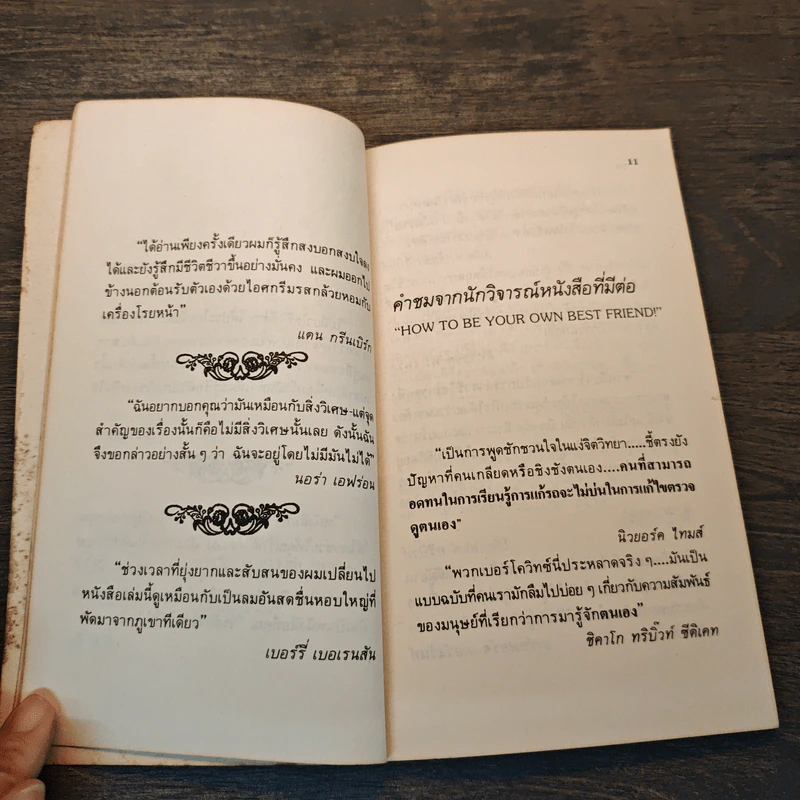 “ได้อ่านเพียงครั้งเดียวผมก็รู้สึกสงบอกสงบใจลง
ได้และยังรู้สึกมีชีวิตชีวาขึ้นอย่างมั่นคง และผมออกไป
ข้างนอกต้อนรับตัวเองด้วยไอศกรีมรสกล้วยหอมกับ
เครื่องโรยหน้า”
แดน กรีนเบิร์ก
“ฉันอยากบอกคุณว่ามันเหมือนกับสิ่งวิเศษ-แต่จุด
สำคัญของเรื่องนั้นก็คือไม่มีสิ่งวิเศษนั้นเลย ดังนั้นฉัน
จึงขอกล่าวอย่างสั้น ๆ ว่า ฉันจะอยู่โดยไม่มีมันไม่ได้”
นอร่า เอฟร่อน
“ช่วงเวลาที่ยุ่งยากและสับสนของผมเปลี่ยนไป
หนังสือเล่มนี้ดูเหมือนกับเป็นลมอันสดชื่นหอบใหญ่ที่
พัดมาจากภูเขาทีเดียว”
เบอร์รี่ เบอเรนสัน
11
คำชมจากนักวิจารณ์หนังสือที่มีต่อ
“HOW TO BE YOUR OWN BEST FRIEND!”
“เป็นการพูดชักชวนใจในแง่จิตวิทยา.....ชี้ตรงยัง
ปัญหาที่คนเกลียดหรือชิงชังตนเอง....คนที่สามารถ
อดทนในการเรียนรู้การแก้รถจะไม่บ่นในการแก้ไขตรวจ
ดูตนเอง”
นิวยอร์ค ไทมส์
“พวกเบอร์โควิทซ์นี่ประหลาดจริง ๆ....มันเป็น
แบบฉบับที่คนเรามักลืมไปบ่อย ๆ เกี่ยวกับความสัมพันธ์
ของมนุษย์ที่เรียกว่าการมารู้จักตนเอง”
ชิคาโก ทริบิ๊วท์ ซีดิเคท